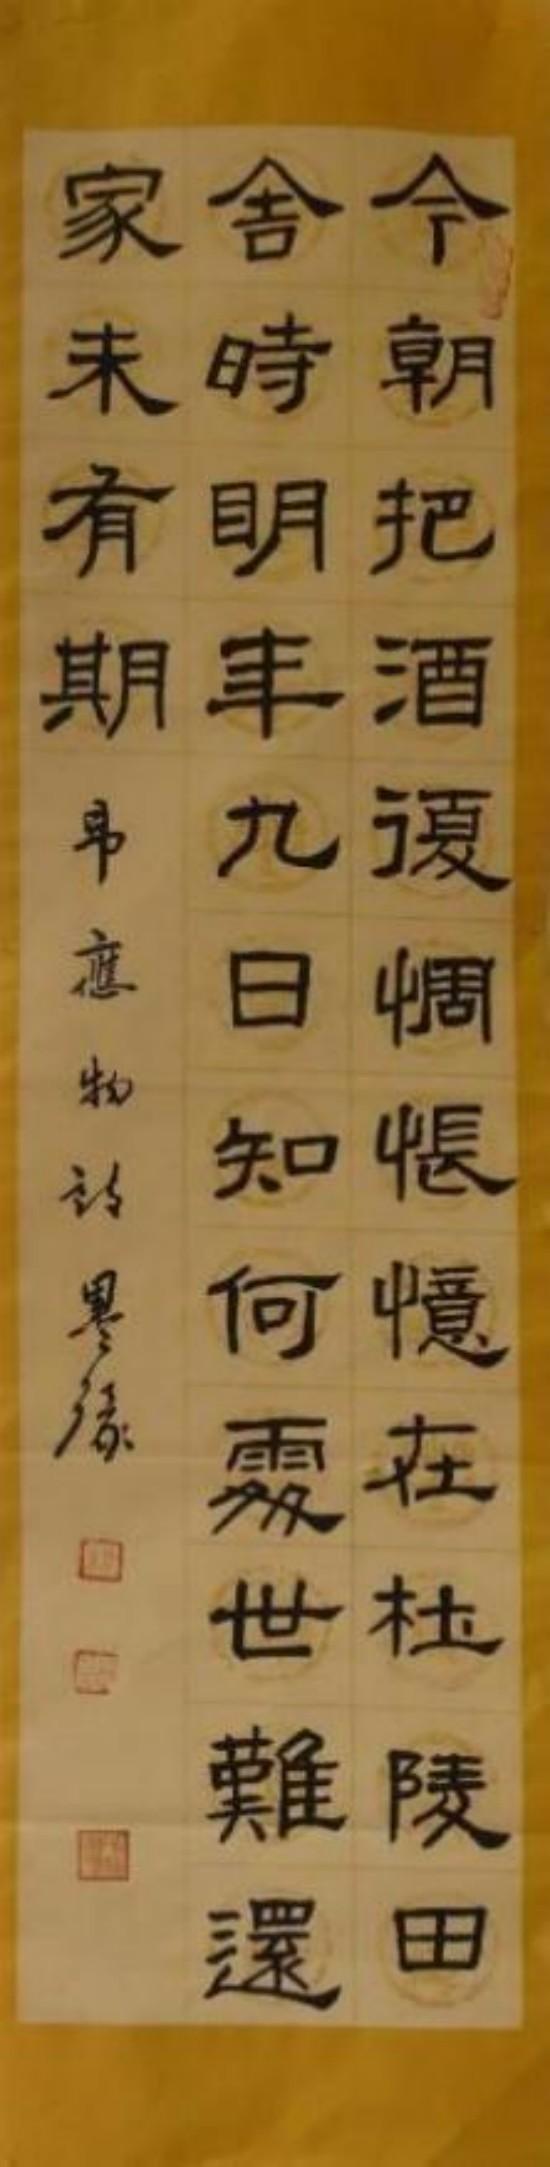 今朝把酒復惆悵憶在杜陵田
舍時明年九日知何處世難還
家未有期
韋應物詩